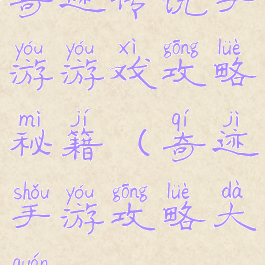 奇迹传说手
yóu yóu xì gōng lüè
游游戏攻略
mì jí qí jì
秘籍（奇迹
shǒu yóu gōng lüè dà
手游攻略大
quán